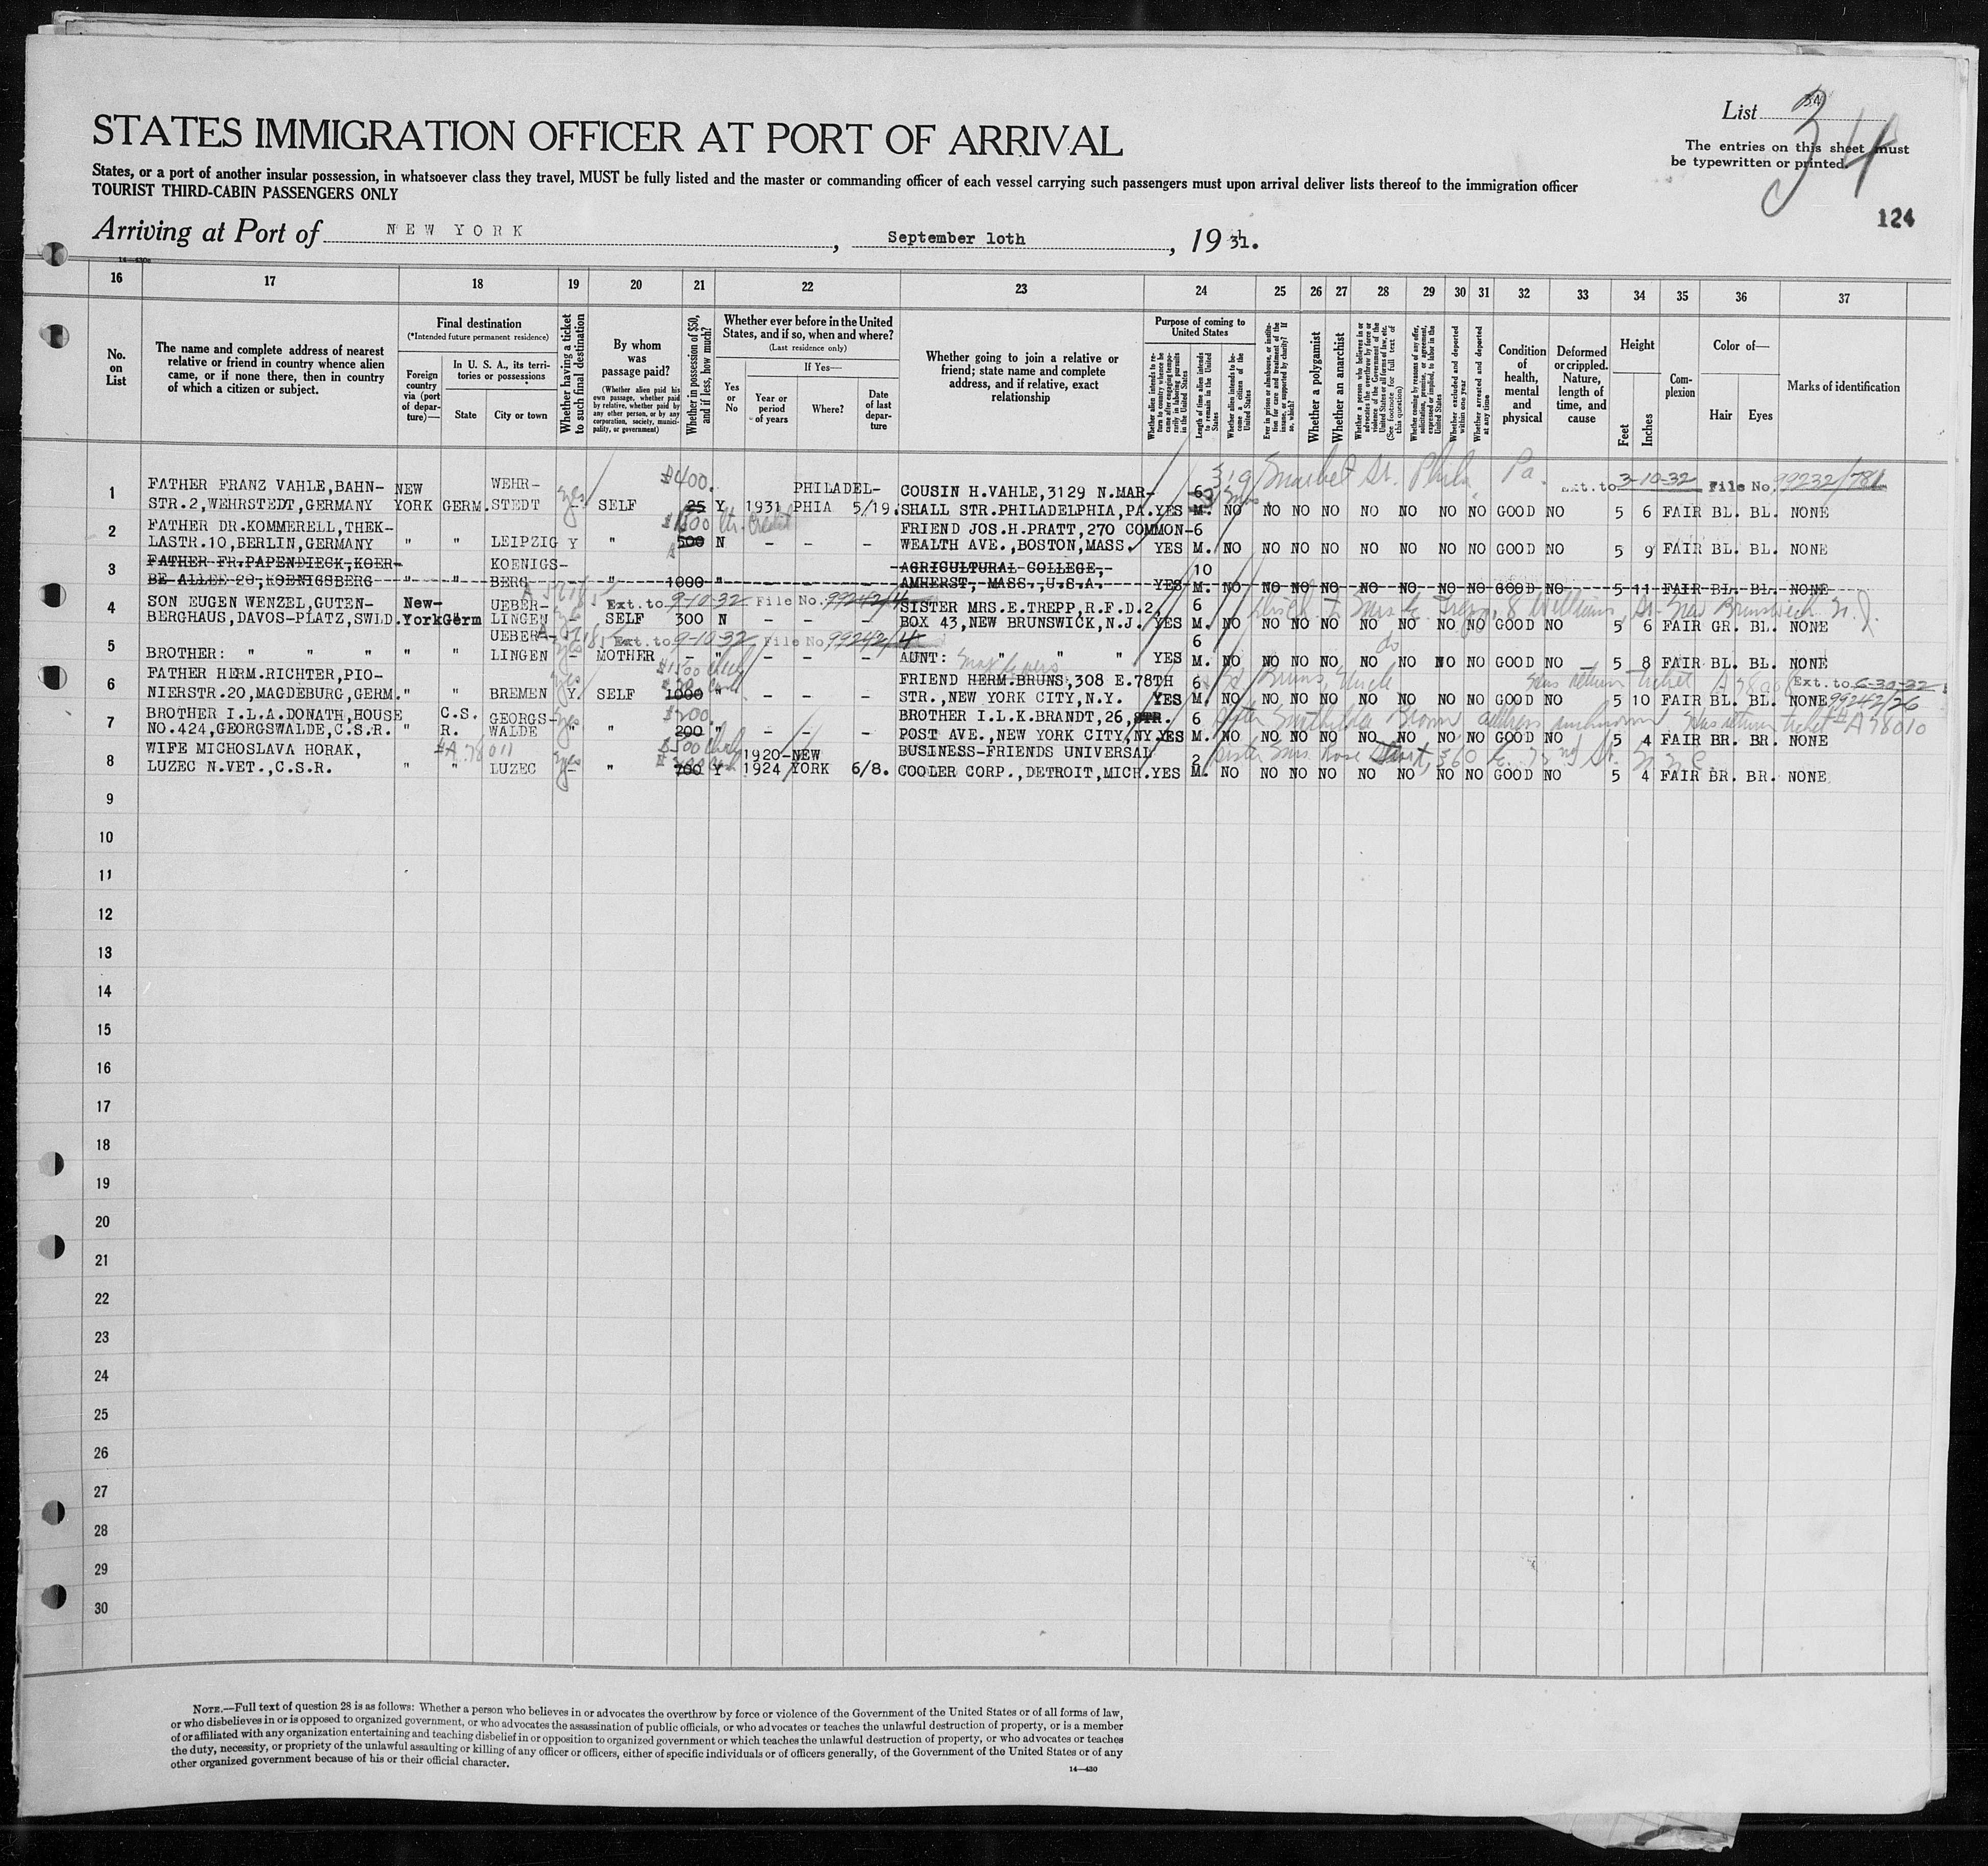 List 34
34
The entries on this sheet must
be typewritten or printed.
STATES IMMIGRATION OFFICER AT PORT OF ARRIVAL
States, or a port of another insular possession, in whatsoever class they travel, MUST be fully listed and the master or commanding officer of each vessel carrying such passengers must upon arrival deliver lists thereof to the immigration officer
TOURIST THIRD-CABIN PASSENGERS ONLY
124
Arriving at Port of NEW YORK, September 10th, 1931.
14—430a
16 17 18 19 20 21 22 23 24 25 26 27 28 29 30 31 32 33 34 35 36 37
No.
on
List
The name and complete address of nearest
relative or friend in country whence alien
came, or if none there, then in country
of which a citizen or subject.
Final destination
(*Intended future permanent residence)
Foreign
country
via (port
of depar-
ture)—
In U. S. A., its terri-
tories or possessions
State
City or town
Whether having a ticket
to such final destination
By whom
was
passage paid?
(Whether alien paid his
own passage, whether paid
by relative, whether paid by
any other person, or by any
corporation, society, munici-
pality, or government)
Whether in possession of $50,
and if less, how much?
Whether ever before in the United
States, and if so, when and where?
(Last residence only)
Yes
or
No
If Yes—
Year or
period
of years
Where?
Date
of last
depar-
ture
Whether going to join a relative or
friend; state name and complete
address, and if relative, exact
relationship
Purpose of coming to
United States
Whether alien intends to re-
turn to country whence he
came after engaging tempo-
rarily in laboring pursuits
in the United States
Length of time alien intends
to remain in the United
States
Whether alien intends to be-
come a citizen of the
United States
Ever in prison or almshouse, or institu-
tion for care and treatment of the
insane, or supported by charity? If
so, which?
Whether a polygamist
Whether an anarchist
Whether a person who believes in or
advocates the overthrow by force or
violence of the Government of the
United States or all forms of law, etc.
(See footnote for full text of
this question)
Whether coming by reasons of any offer,
solicitation, promise, or agreement,
expressed or implied, to labor in the
United States
Whether excluded and deported
within one year
Whether arrested and deported
at any time
Condition
of
health,
mental
and
physical
Deformed
or crippled.
Nature,
length of
time, and
cause
Height
Feet
Inches
Com-
plexion
Color of—
Hair
Eyes
Marks of identification
$400. 319 Market St. Phila Pa. Ext. to 3-10-32 File No. 99232/781
1 FATHER FRANZ VAHLE, BAHN- NEW WEHR- PHILADEL- COUSIN H.VAHLE, 3129 N.MAR- 6
STR.2, WEHRSTEDT, GERMANY YORK GERM. STEDT yes - SELF 25 Y 1931 PHIA 5/19. SHALL STR.PHILADELPHIA, PA. YES M. NO NO NO NO NO NO NO NO GOOD NO 5 6 FAIR BL. BL. NONE
2 FATHER DR.KOMMERELL, THEK- $1500 FRIEND JOS.H.PRATT, 270 COMMON- 6
LASTR.10, BERLIN, GERMANY " " LEIPZIG Y " 500 N - - - WEALTH AVE., BOSTON, MASS. YES M. NO NO NO NO NO NO NO NO GOOD NO 5 9 FAIR BL. BL. NONE
3 FATHER FR.PAPENDIECK, KOER- KOENIGS- AGRICULTURAL COLLEGE, 10
BE ALLEE 20, KOENIGSBERG " " BERG - " 1000 " - - - AMHERST, MASS., U.S.A. YES M. NO NO NO NO NO NO NO NO GOOD NO 5 11 FAIR BL. BL. NONE
4 SON EUGEN WENZEL, GUTEN- New- UEBER- yes Ext. to 9-10-32 File No. 99242/4 SISTER MRS.E.TREPP, R.F.D.2, 6
BERGHAUS, DAVOS-PLATZ, SWLD. York Germ LINGEN - SELF 300 N - - - BOX 43, NEW BRUNSWICK, N.J. YES M. NO NO NO NO NO NO NO NO GOOD NO 5 6 FAIR GR. BL. NONE
UEBER- yes Ext. to 9-10-32 File No. 99242/4 6 do
5 BROTHER: " " " " " LINGEN - MOTHER - " - - - AUNT: " " " YES M. NO NO NO NO NO NO NO NO GOOD NO 5 8 FAIR BL. BL. NONE
6 FATHER HERM.RICHTER, PIO- yes $1500 FRIEND HERM.BRUNS, 308 E.78TH 6 Bruns, Uncle Has return ticket Ext. to 6-30-32
NIERSTR.20, MAGDEBURG, GERM. " " BREMEN Y SELF 1000 " - - - STR., NEW YORK CITY, N.Y. YES M. NO NO NO NO NO NO NO NO GOOD NO 5 10 FAIR BL. BL. NONE 99242/26
7 BROTHER I.L.A.DONATH, HOUSE C.S. GEORGS- yes $200. BROTHER I.L.K.BRANDT, 26, STR. 6 Sister Mathilda Brown address unknown, Has return ticket # A78010
NO.424, GEORGSWALDE, C.S.R. " R. WALDE " " 200 " - - - POST AVE., NEW YORK CITY, NY. YES M. NO NO NO NO NO NO NO NO GOOD NO 5 4 FAIR BR. BR. NONE
8 WIFE MICHOSLAVA HORAK, #A.78011 yes $500 1920- NEW BUSINESS-FRIENDS UNIVERSAL 2 Sister Mrs. Rose 360 E. 72nd St. N.Y.C.
LUZEC N.VET., C.S.R. " " LUZEC - " 700 Y 1924 YORK 6/8. COOLER CORP., DETROIT, MICH. YES M. NO NO NO NO NO NO NO NO GOOD NO 5 4 FAIR BR. BR. NONE
9
10
11
12
13
14
15
16
17
18
19
20
21
22
23
24
25
26
27
28
29
30
NOTE.—Full text of question 28 is as follows: Whether a person who believes in or advocates the overthrow by force or violence of the Government of the United States or of all forms of law,
or who disbelieves in or is opposed to organized government, or who advocates the assassination of public officials, or who advocates or teaches the unlawful destruction of property, or is a member
of or affiliated with any organization entertaining and teaching disbelief in or opposition to organized government or which teaches the unlawful destruction of property, or who advocates or teaches
the duty, necessity, or propriety of the unlawful assaulting or killing of any officer or officers, either of specific individuals or of officers generally, of the Government of the United States or of any
other organized government because of his or their official character.
14—430